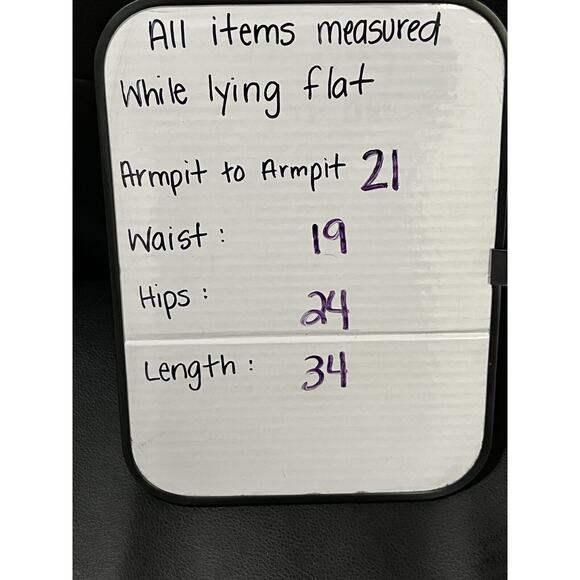 All items measured
While lying flat
Armpit to Armpit 21
Waist: 19
Hips: 24
Length: 34